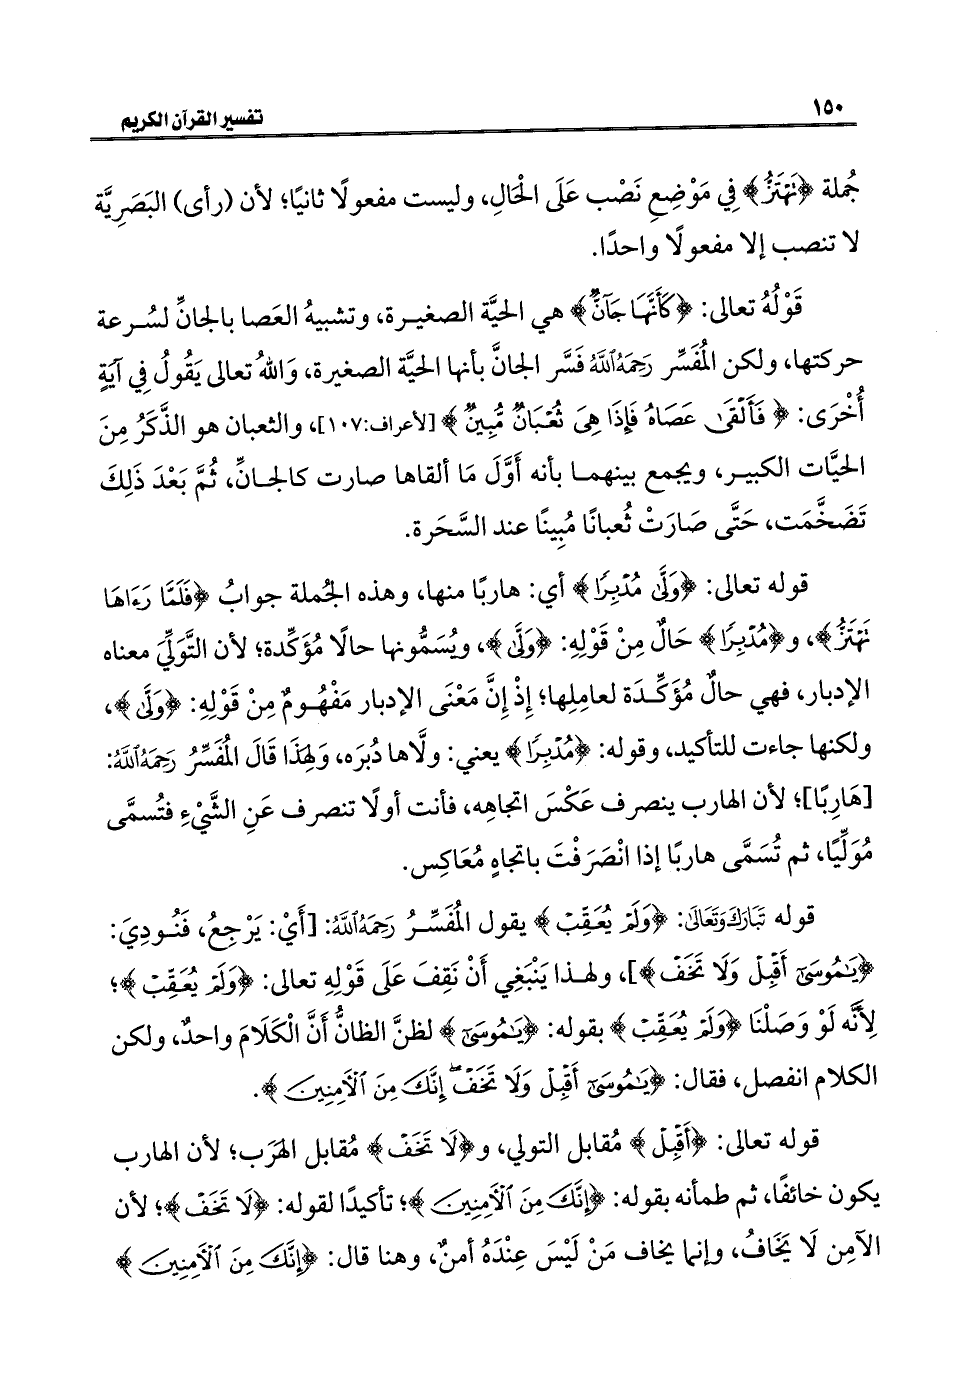 ١٥٠
تفسير القرآن الكريم
جُملة ﴿تَهْتَزُّ﴾ فِي مَوْضِعِ نَصْب عَلَى الْحَالِ، وليست مفعولًا ثانيًا؛ لأن (رأى) البَصَرِيَّة
لا تنصب إلا مفعولًا واحدًا.
قَوْلُهُ تعالى: ﴿كَأَنَّهَا جَآنٌّ﴾ هي الحيَّة الصغيرة، وتشبيهُ العصا بالجانِّ لسُرعة
حركتها، ولكن المُفَسِّر رَحِمَهُ ٱللَّهُ فسَّر الجانَّ بأنها الحيَّة الصغيرة، وَاللهُ تعالى يَقُولُ فِي آيَةٍ
أُخْرَى: ﴿فَأَلْقَىٰ عَصَاهُ فَإِذَا هِىَ ثُعْبَانٌ مُّبِينٌ﴾ [لأعراف:١٠٧]، والثعبان هو الذَّكَرُ مِنَ
الحيَّات الكبير، ويجمع بينهما بأنه أَوَّلَ مَا ألقاها صارت كالجانِّ، ثُمَّ بَعْدَ ذَلِكَ
تَضَخَّمَت، حَتَّى صَارَتْ ثُعبانًا مُبِينًا عند السَّحَرة.
قوله تعالى: ﴿وَلَّىٰ مُدْبِرًا﴾ أي: هاربًا منها، وهذه الجُملة جوابُ ﴿فَلَمَّا رَءَاهَا
تَهْتَزُّ﴾، و﴿مُدْبِرًا﴾ حَالٌ مِنْ قَوْلِهِ: ﴿وَلَّىٰ﴾، ويُسَمُّونها حالًا مُؤَكِّدة؛ لأن التَّوَلِّيَ معناه
الإدبار، فهي حالٌ مُؤَكِّدَة لعامِلِها؛ إِذْ إِنَّ مَعْنَى الإدبار مَفْهُومٌ مِنْ قَوْلِهِ: ﴿وَلَّىٰ﴾،
ولكنها جاءت للتأكيد، وقوله: ﴿مُدْبِرًا﴾ يعني: ولَّاها دُبُرَه، وَلِهَذَا قَالَ المُفَسِّرُ رَحِمَهُ ٱللَّهُ:
[هَارِبًا]؛ لأن الهارب ينصرف عَكْسَ اتجاهِه، فأنت أولًا تنصرف عَنِ الشَّيْءِ فتُسمَّى
مُوَلِّيًا، ثم تُسَمَّى هاربًا إذا انْصَرَفْتَ باتجاهٍ مُعَاكِس.
قوله تَبَارَكَ وَتَعَالَى: ﴿وَلَمْ يُعَقِّبْ﴾ يقول المُفَسِّرُ رَحِمَهُ ٱللَّهُ: [أَيْ: يَرْجِعُ، فَنُودِيَ:
﴿يَٰمُوسَىٰٓ أَقْبِلْ وَلَا تَخَفْ﴾]، ولهذا يَنْبَغِي أَنْ نَقِفَ عَلَى قَوْلِهِ تعالى: ﴿وَلَمْ يُعَقِّبْ﴾؛
لِأَنَّه لَوْ وَصَلْنَا ﴿وَلَمْ يُعَقِّبْ﴾ بقوله: ﴿يَٰمُوسَىٰٓ﴾ لظنَّ الظانُّ أَنَّ الْكَلَامَ واحدٌ، ولكن
الكلام انفصل، فقال: ﴿يَٰمُوسَىٰٓ أَقْبِلْ وَلَا تَخَفْ ۖ إِنَّكَ مِنَ ٱلْأَمِنِينَ﴾.
قوله تعالى: ﴿أَقْبِلْ﴾ مُقابل التولي، و﴿لَا تَخَفْ﴾ مُقابل الهَرَب؛ لأن الهارب
يكون خائفًا، ثم طمأنه بقوله: ﴿إِنَّكَ مِنَ ٱلْأَمِنِينَ﴾؛ تأكيدًا لقوله: ﴿لَا تَخَفْ﴾؛ لأن
الآمن لَا يَخَافُ، وإنما يخاف مَنْ لَيْسَ عِنْدَهُ أمنٌ، وهنا قال: ﴿إِنَّكَ مِنَ ٱلْأَمِنِينَ﴾